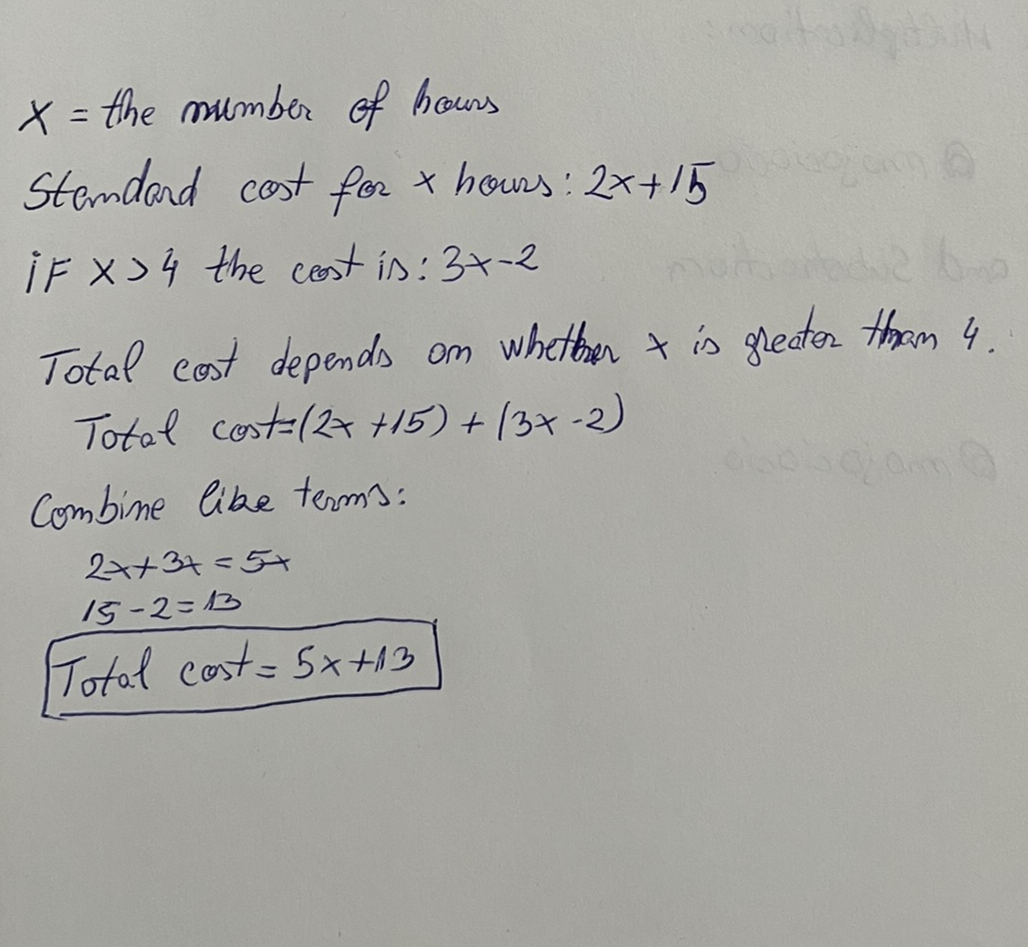 x = the number of hours
Standard cost for x hours: 2x+15
iF x>4 the cost is: 3x-2
Total cost depends on whether x is greater than 4.
Total cost=(2x+15)+(3x-2)
Combine like terms:
2x+3x=5x
15-2=13
Total cost= 5x+13